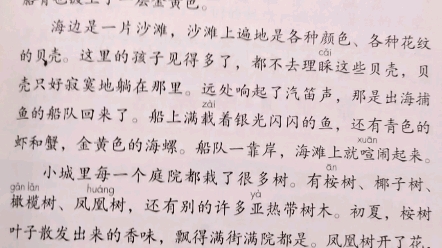 船有包镀上了一层金黄色。
海边是一片沙滩，沙滩上遍地是各种颜色、各种花纹
的贝壳。这里的孩子见得多了，都不去理睬这些贝壳，贝
cǎi
壳只好寂寞地躺在那里。远处响起了汽笛声，那是出海捕
鱼的船队回来了。船上满载着银光闪闪的鱼，还有青色的
zài
虾和蟹，金黄色的海螺。船队一靠岸，海滩上就喧闹起来。
xuān
小城里每一个庭院都栽了很多树。有桉树、椰子树、
ān
gǎn lǎn huáng yà
橄榄树、凤凰树，还有别的许多亚热带树木。初夏，桉树
叶子散发出来的香味，飘得满街满院都是。凤凰树开了花，